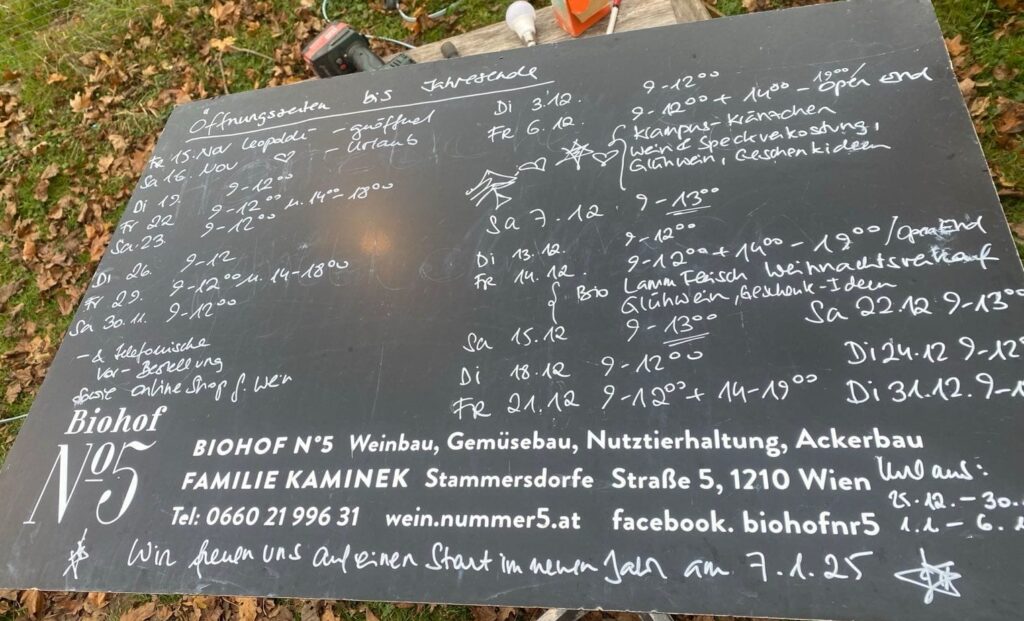 Öffnungszeiten bis Jahresende
Fr 15. Nov Leopoldi - geöffnet
Sa 16. Nov ♡ - Urlaub
Di 19. 9-12⁰⁰
Fr 22 9-12⁰⁰ u. 14⁰⁰-18⁰⁰
Sa. 23. 9-12⁰⁰
Di 26. 9-12
Fr 29. 9-12⁰⁰ u. 14-18⁰⁰
Sa 30.11. 9-12⁰⁰
- & telefonische
Vor-Bestellung
sowie online Shop f. Wein
Di 3.12. 9-12⁰⁰
Fr 6.12. 9-12⁰⁰ + 14⁰⁰ - 19⁰⁰/open end
Krampus-Kränzchen
Wein & Speckverkostung,
Glühwein, Geschenkideen
Sa 7.12. 9-13⁰⁰
Di 13.12. 9-12⁰⁰
Fr 14.12. 9-12⁰⁰ + 14⁰⁰ - 19⁰⁰/Open End
Bio Lamm Fleisch Weihnachtsverkauf
Glühwein, Geschenk-Ideen
Sa 15.12 9-13⁰⁰
Di 18.12 9-12⁰⁰
Fr 21.12 9-12⁰⁰ + 14-19⁰⁰
Sa 22.12 9-13⁰⁰
Di 24.12 9-12⁰
Di 31.12. 9-1
Biohof
Nº5
BIOHOF N°5 Weinbau, Gemüsebau, Nutztierhaltung, Ackerbau
FAMILIE KAMINEK Stammersdorfe Straße 5, 1210 Wien
Tel: 0660 21 996 31 wein.nummer5.at facebook. biohofnr5
Url aus:
25.12. - 30.
1.1 - 6.1
Wir freuen uns auf einen Start im neuen Jahr am 7.1.25